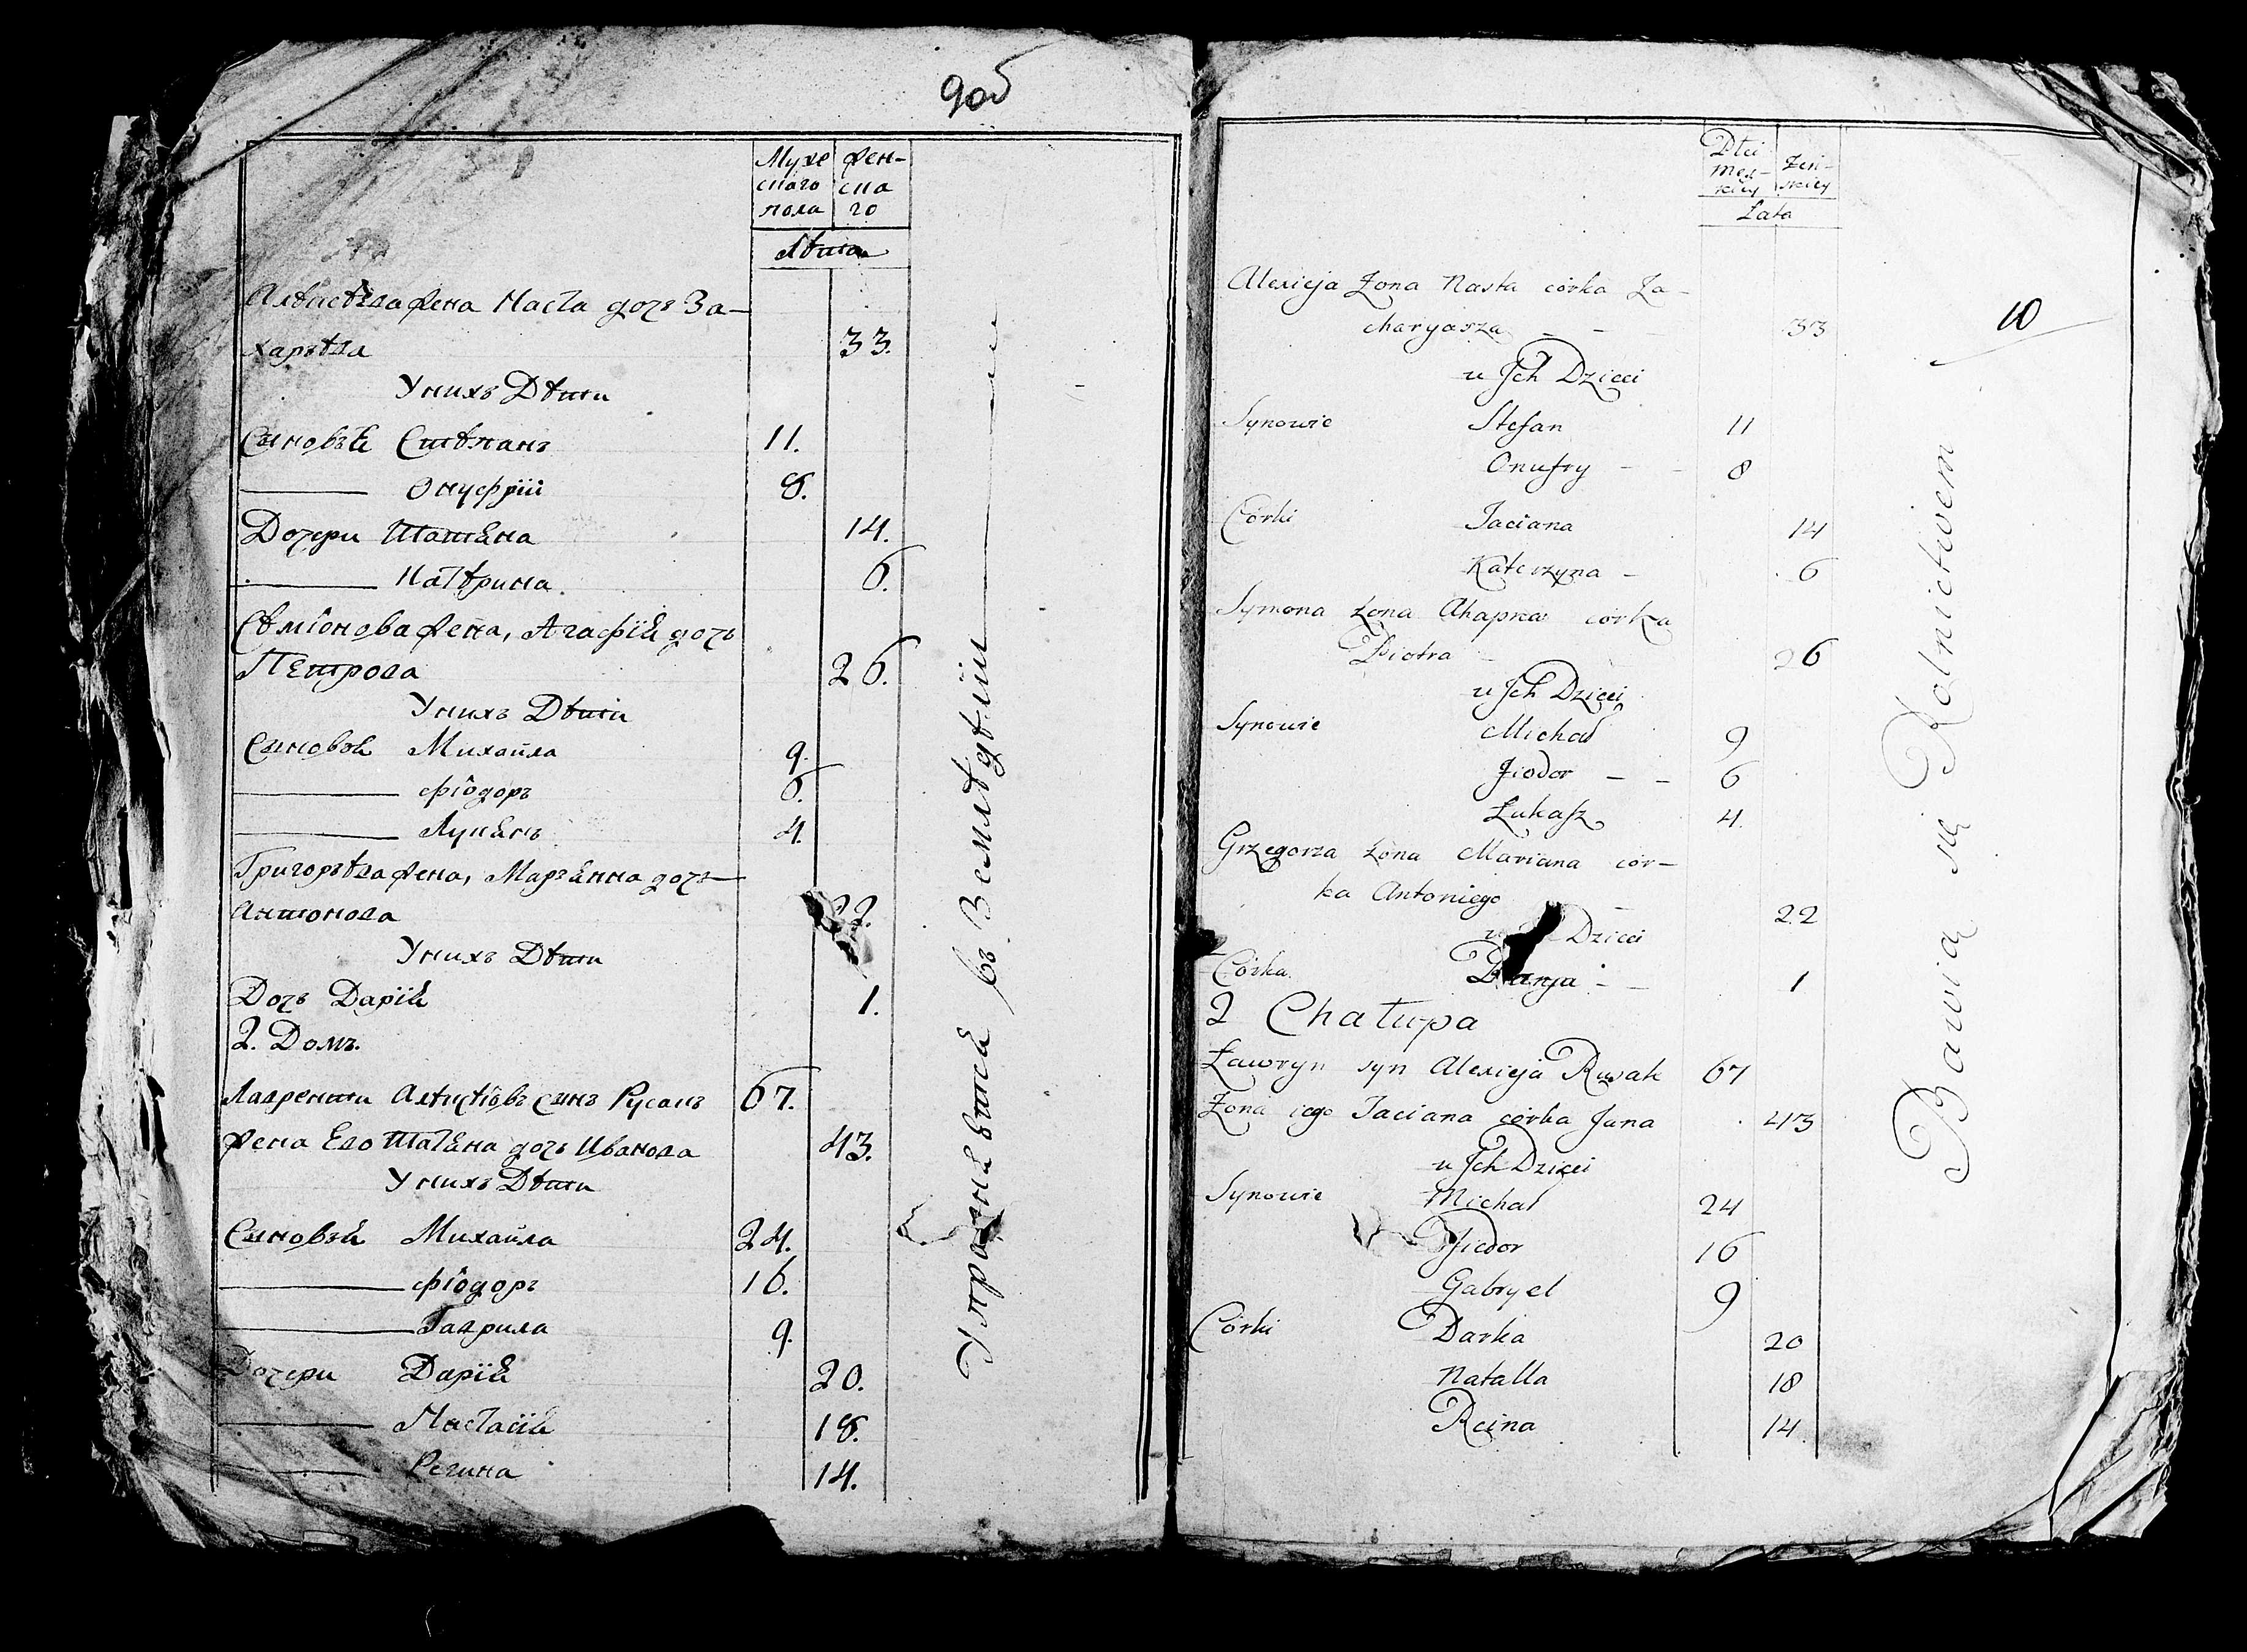 9об
Муже
скаго
пола
жен-
ска
го
Лѣта
Алексѣева жена Наста дочь За-
харѣва 33.
У нихъ Дѣти
Сыновья Стѣпанъ 11.
Онуфрій 8.
Дочери Татьяна 14.
Катѣрина 6.
Сѣміонова жена, Агафія дочь
Петрова 26.
У нихъ Дѣти
Сыновья Михайла 9.
Фіодоръ 6.
Лукьянъ 4.
Григорѣва жена, Марьянна дочь
Антонова 22.
У нихъ Дѣти
Дочь Дарія 1.
2. Домъ.
Лаврентій Алексѣѣвъ сынъ Русакъ 67.
жена Ево Татьяна дочь Иванова 43.
У нихъ Дѣти
Сыновья Михайла 24.
Фіодоръ 16.
Гаврила 9.
Дочери Дарія 20.
Настасія 18.
Регина 14.
Упражняются въ Земледѣліи
Płci
męz-
kiey
żeń-
skiey
Lata
10
Alexieja Zona Nasta córka Za-
charyasza 33
u Jch Dzieci
Synowie Stefan 11
Onufry 8
Córki Taciana 14
Katerzyna 6
Symona żona Ahapka córka
Piotra 26
u Jch Dzieci
Synowie Michał 9
Fiodor 6
Łukasz 4.
Grzegorza żona Mariana cór-
ka Antoniego 22
u Dzieci
Córka Darya 1
2 Chałupa
Ławryn syn Alexieja Rusak 67
Zona iego Taciana córka Jana 43
u Jch Dzieci
Synowie Michał 24
Fiedor 16
Gabryel 9
Córki Darka 20
Natalla 18
Reina 14
Bawią się Rolnictwem